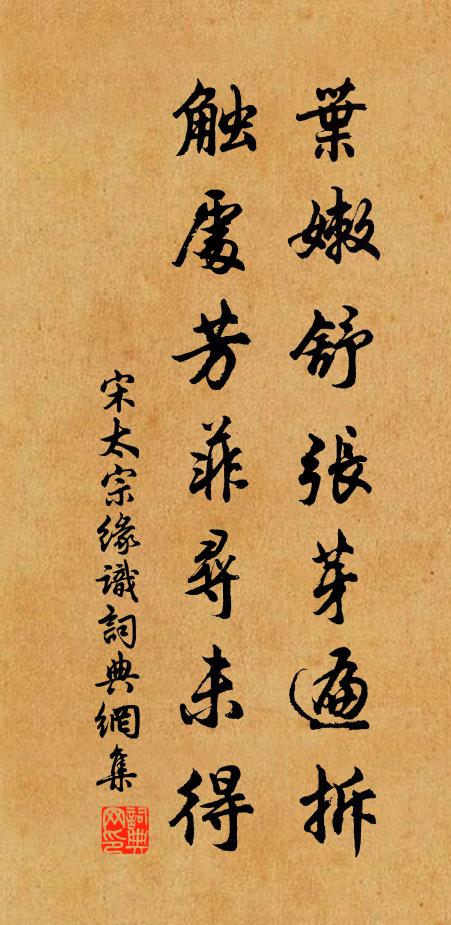 葉嫩舒張芽遍拆
触處芳菲尋未得
宋太宗緣識詞典網集
詞典網印